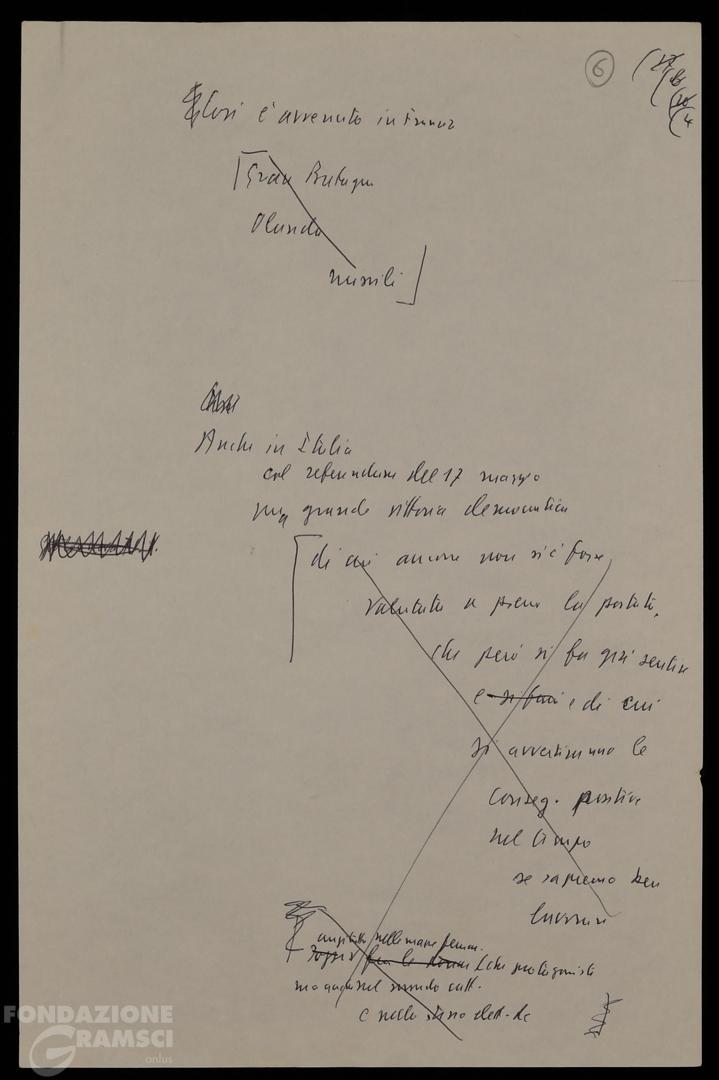 6
Così è avvenuto in Francia
Gran Bretagna
Olanda
missili
Anche in Italia
col referendum del 17 maggio
una grande vittoria democratica
di cui ancora non si è forse
valutata a pieno la portata,
che però si fa già sentire
e si farà e di cui
si avvertiranno le
conseg. positive
nel tempo
se sapremo ben
lavorare
nelle masse femm.
fra le donne che protagoniste
ma anche nel mondo catt.
e nello stesso elett. dc
FONDAZIONE
GRAMSCI
onlus